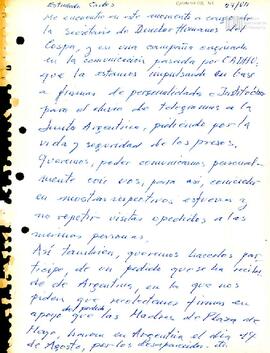 Estimado Carlos
Me encuentro en este momento a cargo de
la Secretaría de Derechos Humanos del
Cospa, y en una campaña enmarcada
en la comunicación pasada por CADHU,
que la estamos impulsando en base
a firmas de personalidades e Instituciones
para el envío de telegramas a la
Junta Argentina, pidiendo por la
vida y seguridad de los presos.
Queremos, poder comunicarnos personal-
mente con vos, para así, coincidir
en nuestros respectivos esfuerzos y
no repetir visitas o pedidos a las
mismas personas.
Así también, queremos hacerlos par-
tícipe, de un pedido que se ha recibi-
do de Argentina, en la que nos
piden que recolectemos firmas en
apoyo que las Madres de Plaza de
Mayo, harán en Argentina el día 14
de Agosto, por los desaparecidos